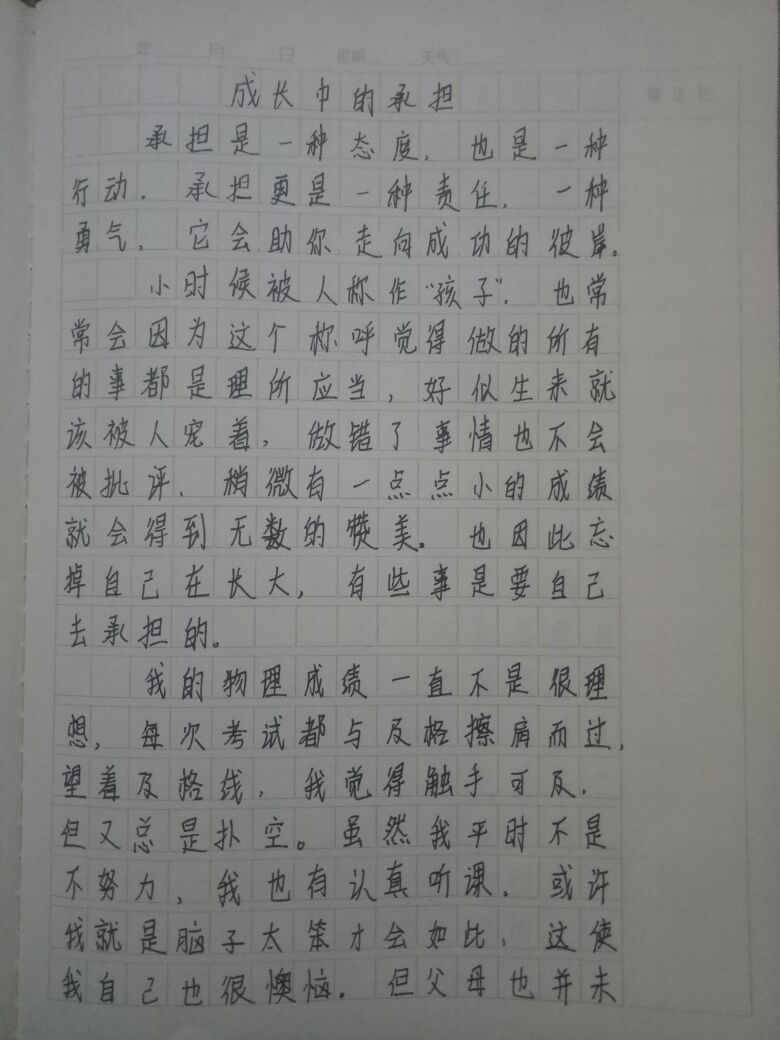 年 月 日 星期 天气
成长中的承担
承担是一种态度，也是一种
行动．承担更是一种责任，一种
勇气，它会助你走向成功的彼岸。
小时候被人称作“孩子”，也常
常会因为这个称呼觉得做的所有
的事都是理所应当，好似生来就
该被人宠着，做错了事情也不会
被批评，稍微有一点点小的成绩
就会得到无数的赞美。也因此忘
掉自己在长大，有些事是要自己
去承担的。
我的物理成绩一直不是很理
想，每次考试都与及格擦肩而过，
望着及格线，我觉得触手可及，
但又总是扑空。虽然我平时不是
不努力，我也有认真听课，或许
我就是脑子太笨才会如此，这使
我自己也很懊恼．但父母也并未